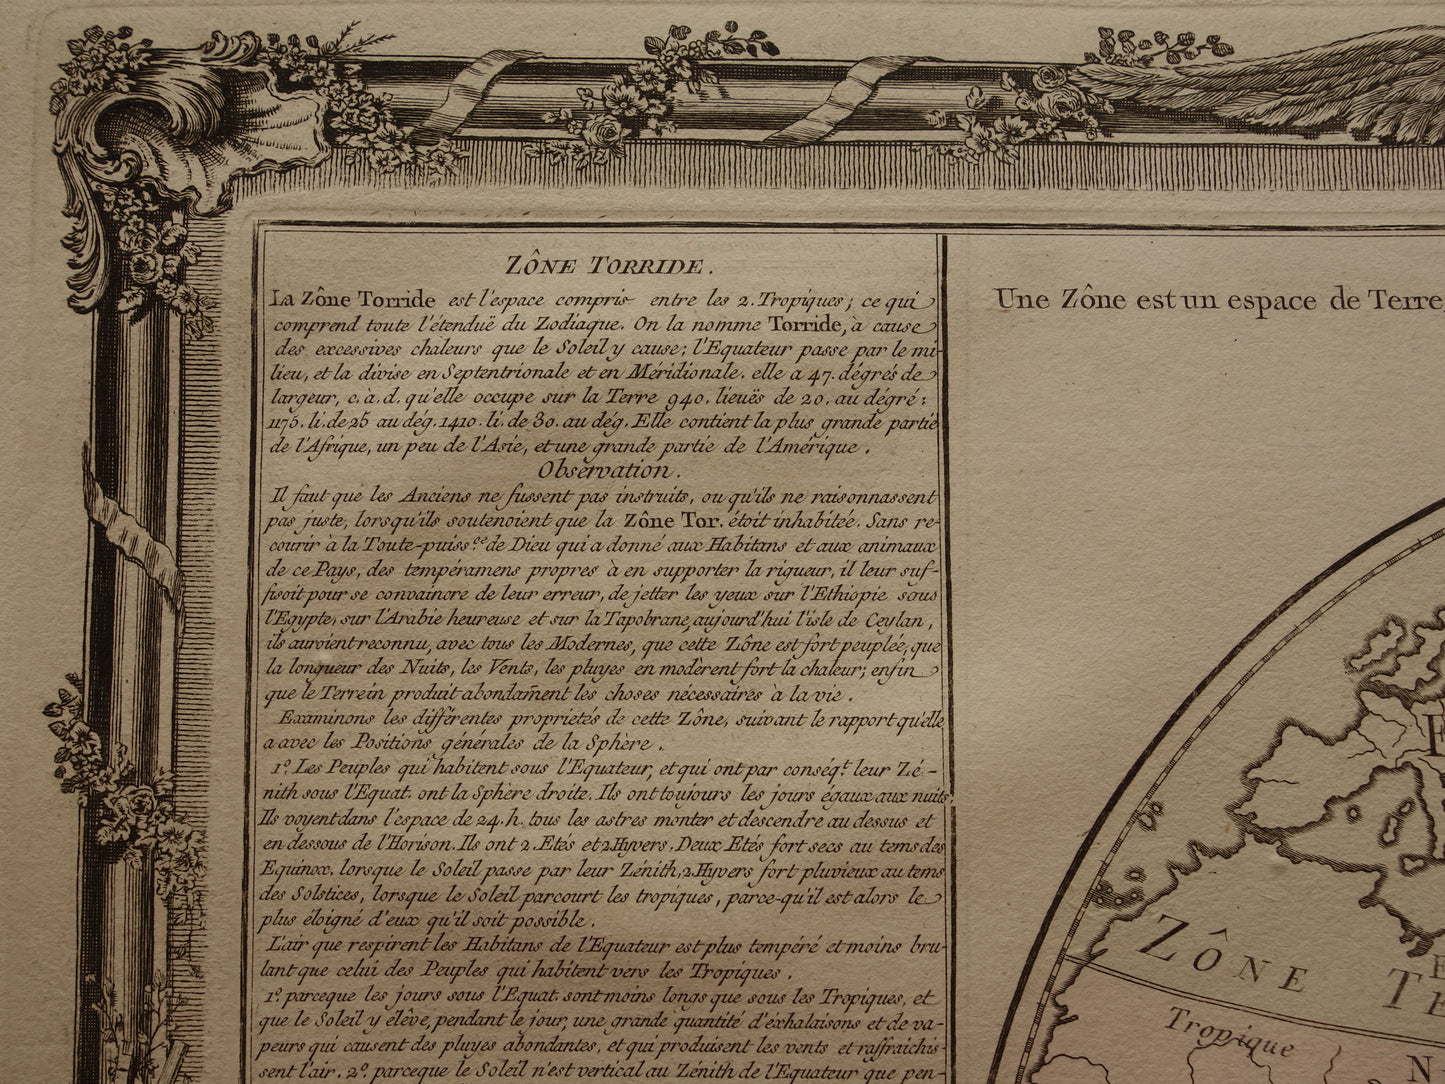 ZÔNE TORRIDE.
La Zône Torride est l'espace compris entre les 2. Tropiques; ce qui
comprend toute l'étenduë du Zodiaque. On la nomme Torride, à cause
des excessives chaleurs que le Soleil y cause; l'Equateur passe par le mi-
lieu, et la divise en Septentrionale et en Méridionale. elle a 47. dégrés de
largeur, c. a. d. qu'elle occupe sur la Terre 940. lieuës de 20. au dégré;
1175. li. de 25 au dég. 1410. li. de 30. au dég. Elle contient la plus grande partie
de l'Afrique, un peu de l'Asie, et une grande partie de l'Amérique.
Observation.
Il faut que les Anciens ne fussent pas instruits, ou qu'ils ne raisonnassent
pas juste, lorsqu'ils soutenoient que la Zône Tor. étoit inhabitée. Sans re-
courir à la Toute-puiss.ce de Dieu qui a donné aux Habitans et aux animaux
de ce Pays, des tempéramens propres à en supporter la rigueur, il leur suf-
fisoit pour se convaincre de leur erreur, de jetter les yeux sur l'Ethiopie sous
l'Egypte, sur l'Arabie heureuse et sur la Tapobrane, aujourd'hui l'isle de Ceylan,
ils auroient reconnu, avec tous les Modernes, que cette Zône est fort peuplée, que
la longueur des Nuits, les Vents, les pluyes en modèrent fort la chaleur; enfin
que le Terrein produit abondam̃ent les choses nécessaires à la vie.
Examinons les différentes proprietés de cette Zône, suivant le rapport qu'elle
a avec les Positions générales de la Sphère.
1º. Les Peuples qui habitent sous l'Equateur, et qui ont par conséq.t leur Zé-
nith sous l'Equat. ont la Sphère droite. Ils ont toujours les jours égaux aux nuits.
Ils voyent dans l'espace de 24. h. tous les astres monter et descendre au dessus et
en dessous de l'Horison. Ils ont 2. Etés et 2. Hyvers. Deux Etés fort secs au tems des
Equinox. lorsque le Soleil passe par leur Zénith, 2. Hyvers fort pluvieux au tems
des Solstices, lorsque le Soleil parcourt les tropiques, parce-qu'il est alors le
plus éloigné d'eux qu'il soit possible.
L'air que respirent les Habitans de l'Equateur est plus tempéré et moins bru-
lant que celui des Peuples qui habitent vers les Tropiques.
1º. parceque les jours sous l'Equat. sont moins longs que sous les Tropiques, et
que le Soleil y elève, pendant le jour, une grande quantité d'éxhalaisons et de va-
peurs qui causent des pluyes abondantes, et qui produisent les vents et raffraichis-
sent l'air. 2º. parceque le Soleil n'est vertical au Zénith de l'Equateur que pen-
Une Zône est un espace de Terre
ZÔNE TE
Tropique
N